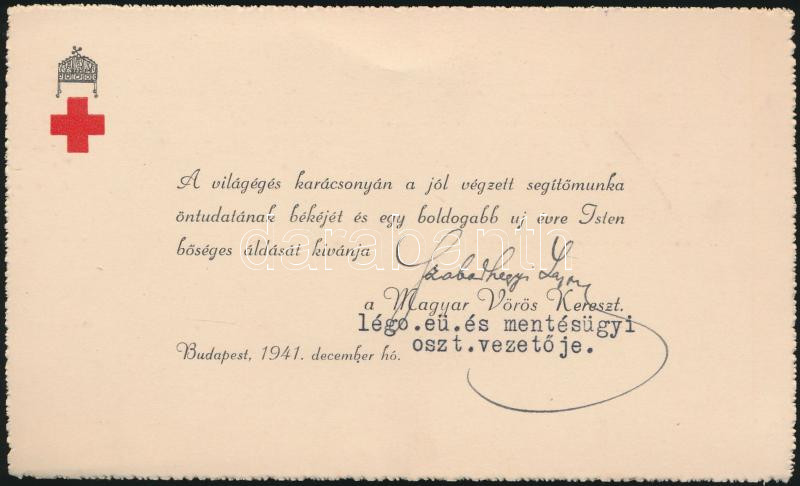 A világégés karácsonyán a jól végzett segítőmunka
öntudatának békéjét és egy boldogabb uj évre Isten
bőséges áldását kivánja
darabanth
Szabadhegyi
a Magyar Vörös Kereszt.
légo.eü.és mentésügyi
oszt.vezetője.
Budapest, 1941. december hó.